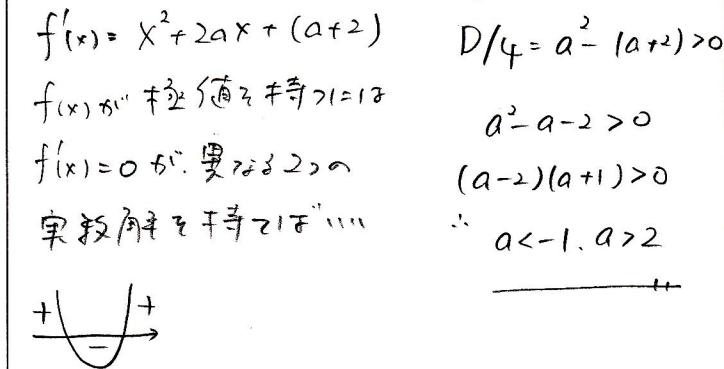 f'(x) = x²+2ax+(a+2)
f(x)が極値を持つには
f'(x)=0が、異なる2つの
実数解を持てばいい
+ − +
D/4 = a²-(a+2)>0
a²-a-2>0
(a-2)(a+1)>0
∴ a<-1、a>2